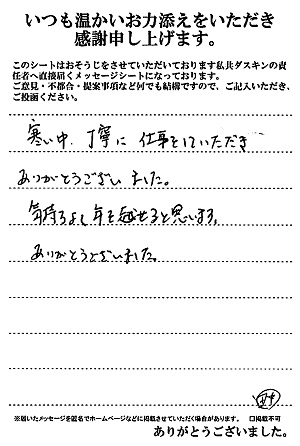 いつも温かいお力添えをいただき
感謝申し上げます。
このシートはおそうじをさせていただいております私共ダスキンの責
任者へ直接届くメッセージシートになっております。
ご意見・不都合・提案事項など何でも結構ですので、ご記入いただき、
ご投函ください。
寒い中、丁寧に 仕事をしていただき
ありがとうございました。
気持ちよく年を越せると思います。
ありがとうございました。
※届いたメッセージを匿名でホームページなどに掲載させていただく場合があります。 □掲載不可
ありがとうございました。